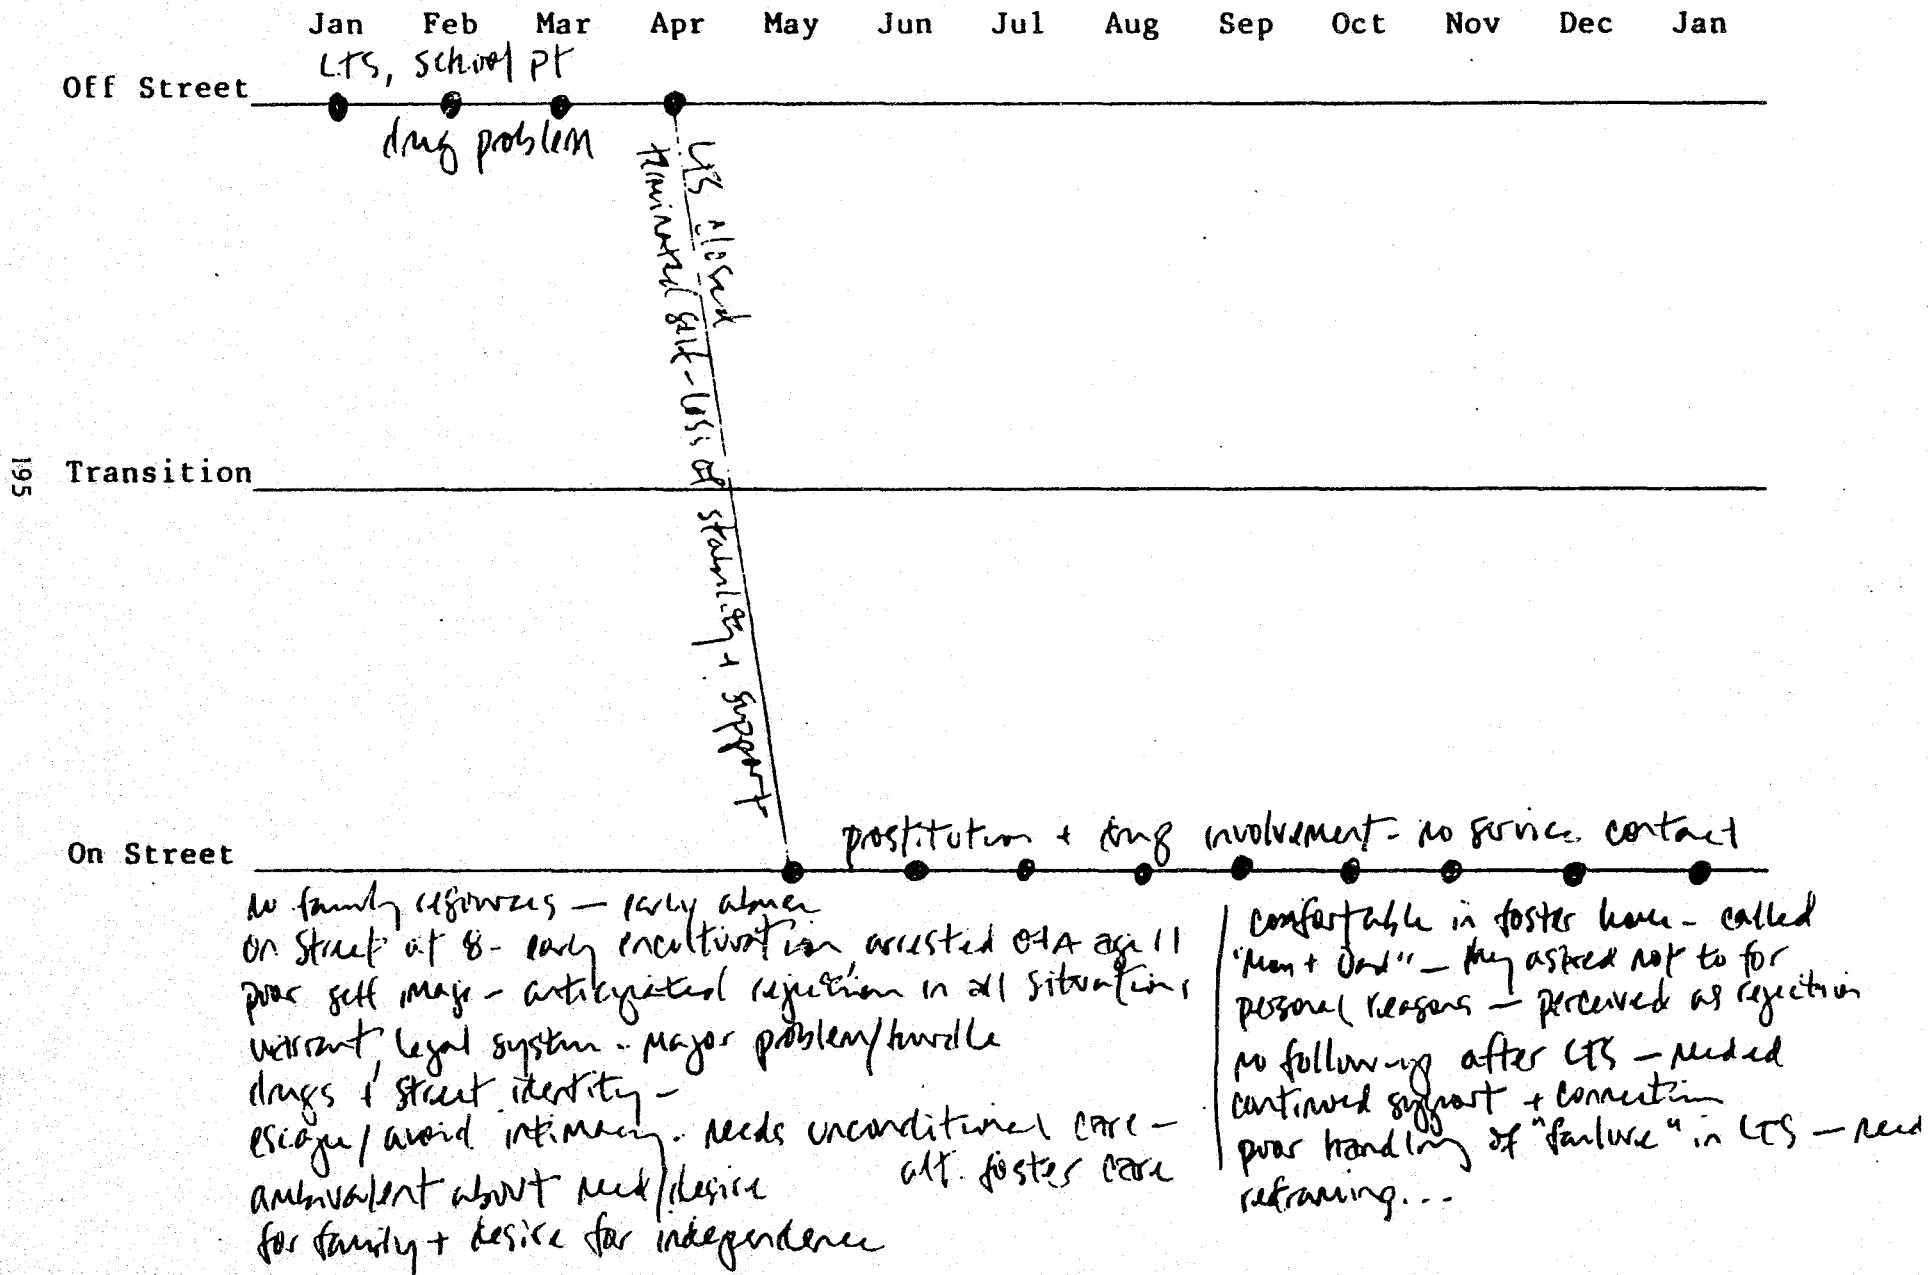 Jan Feb Mar Apr May Jun Jul Aug Sep Oct Nov Dec Jan
LTS, school pt
Off Street
drug problem
LTS closed
terminated self - loss of stability + support
195
Transition
prostitution + drug involvement - no service contact
On Street
no family resources — early abuse
on street at 8 - early enculturation, arrested age 11
poor self image - anticipated rejection in all situations
warrant, legal system - major problem/hurdle
drugs + street identity -
escape/avoid intimacy. needs unconditional care -
alt. foster care
ambivalent about need/desire
for family + desire for independence
comfortable in foster home - called
"Mom + Dad" - they asked not to for
personal reasons - perceived as rejection
no following after LTS - needed
continued support + connection
poor handling of "failure" in LTS - need
reframing...